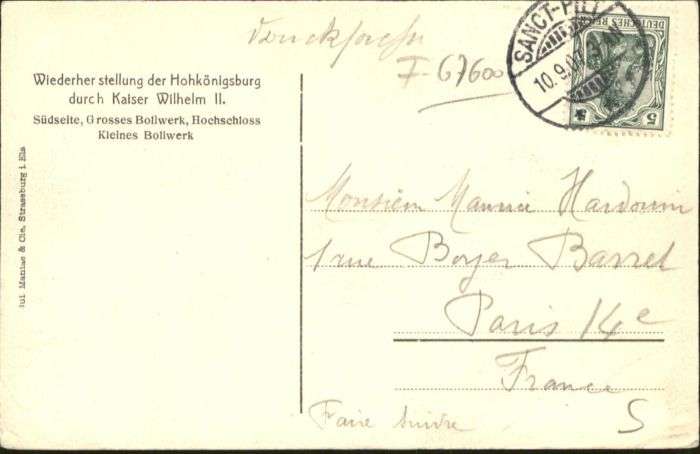 Drucksache
F-67600
Wiederherstellung der Hohkönigsburg
durch Kaiser Wilhelm II.
Südseite, Grosses Bollwerk, Hochschloss
Kleines Bollwerk
Jul. Manias & Cie. Strassburg i. Els
SANCT-PILT
10.9.0
DEUTSCHES REICH
5
Monsieur Maurice Hardouin
1 rue Boyer Barret
Paris 14e
France
Faire suivre
S